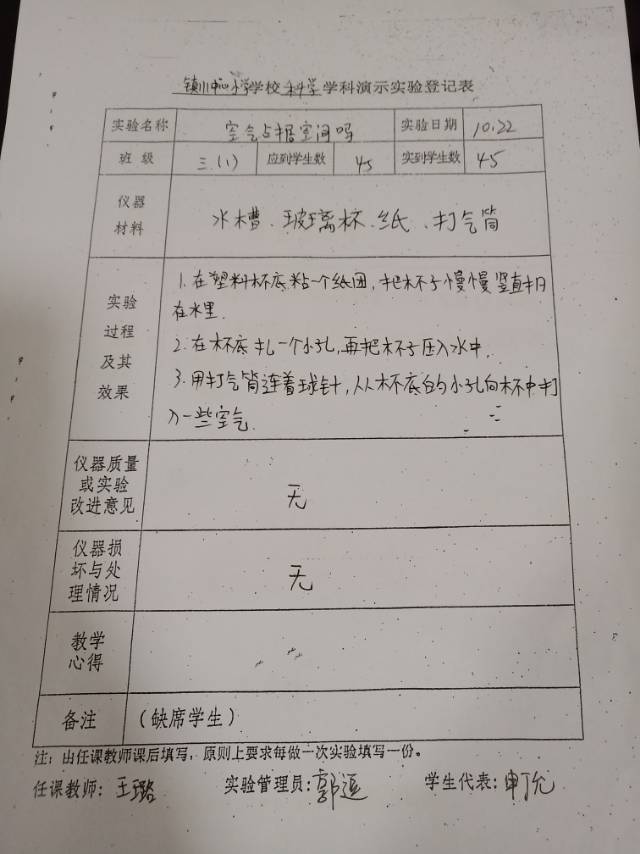 镇川中心小学学校科学学科演示实验登记表
实验名称 空气占据空间吗 实验日期 10.22
班 级 三.(1) 应到学生数 45 实到学生数 45
仪器
材料
水槽、玻璃杯、纸、打气筒
实验
过程
及其
效果
1.在塑料杯底粘一个纸团,把杯子慢慢竖直扣
在水里.
2.在杯底扎一个小孔,再把杯子压入水中.
3.用打气筒连着球针,从杯底的小孔向杯中打
入一些空气.
仪器质量
或实验
改进意见
无
仪器损
坏与处
理情况
无
教学
心得
备注 (缺席学生)
注:由任课教师课后填写,原则上要求每做一次实验填写一份。
任课教师:王璐 实验管理员:郭 学生代表:申